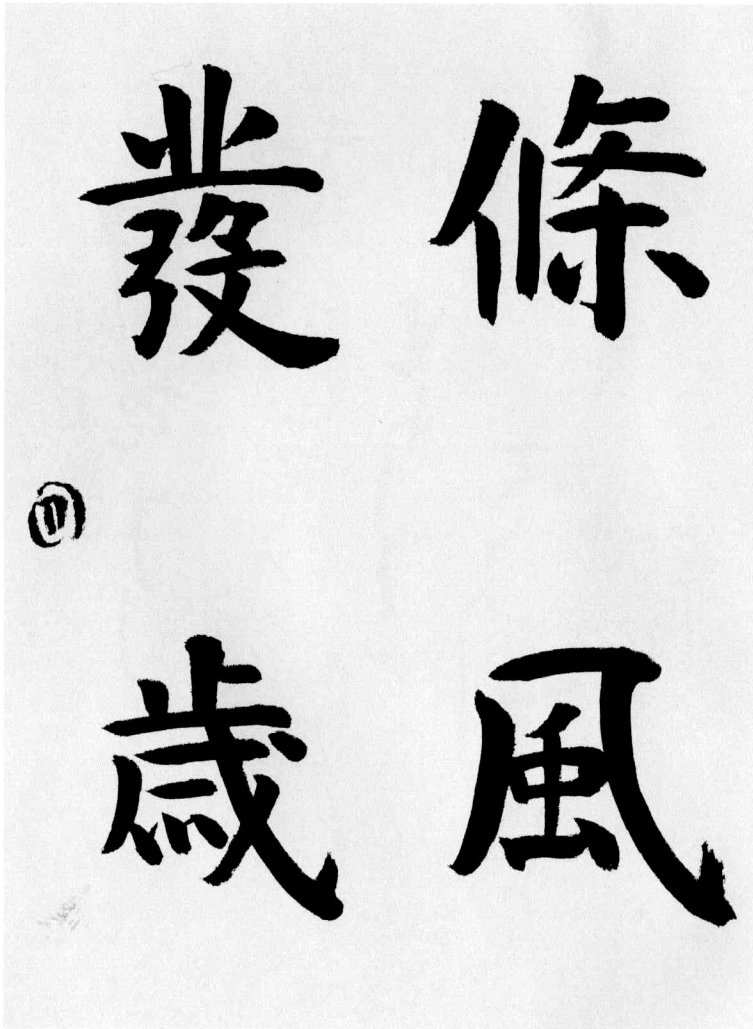 條風
發歲